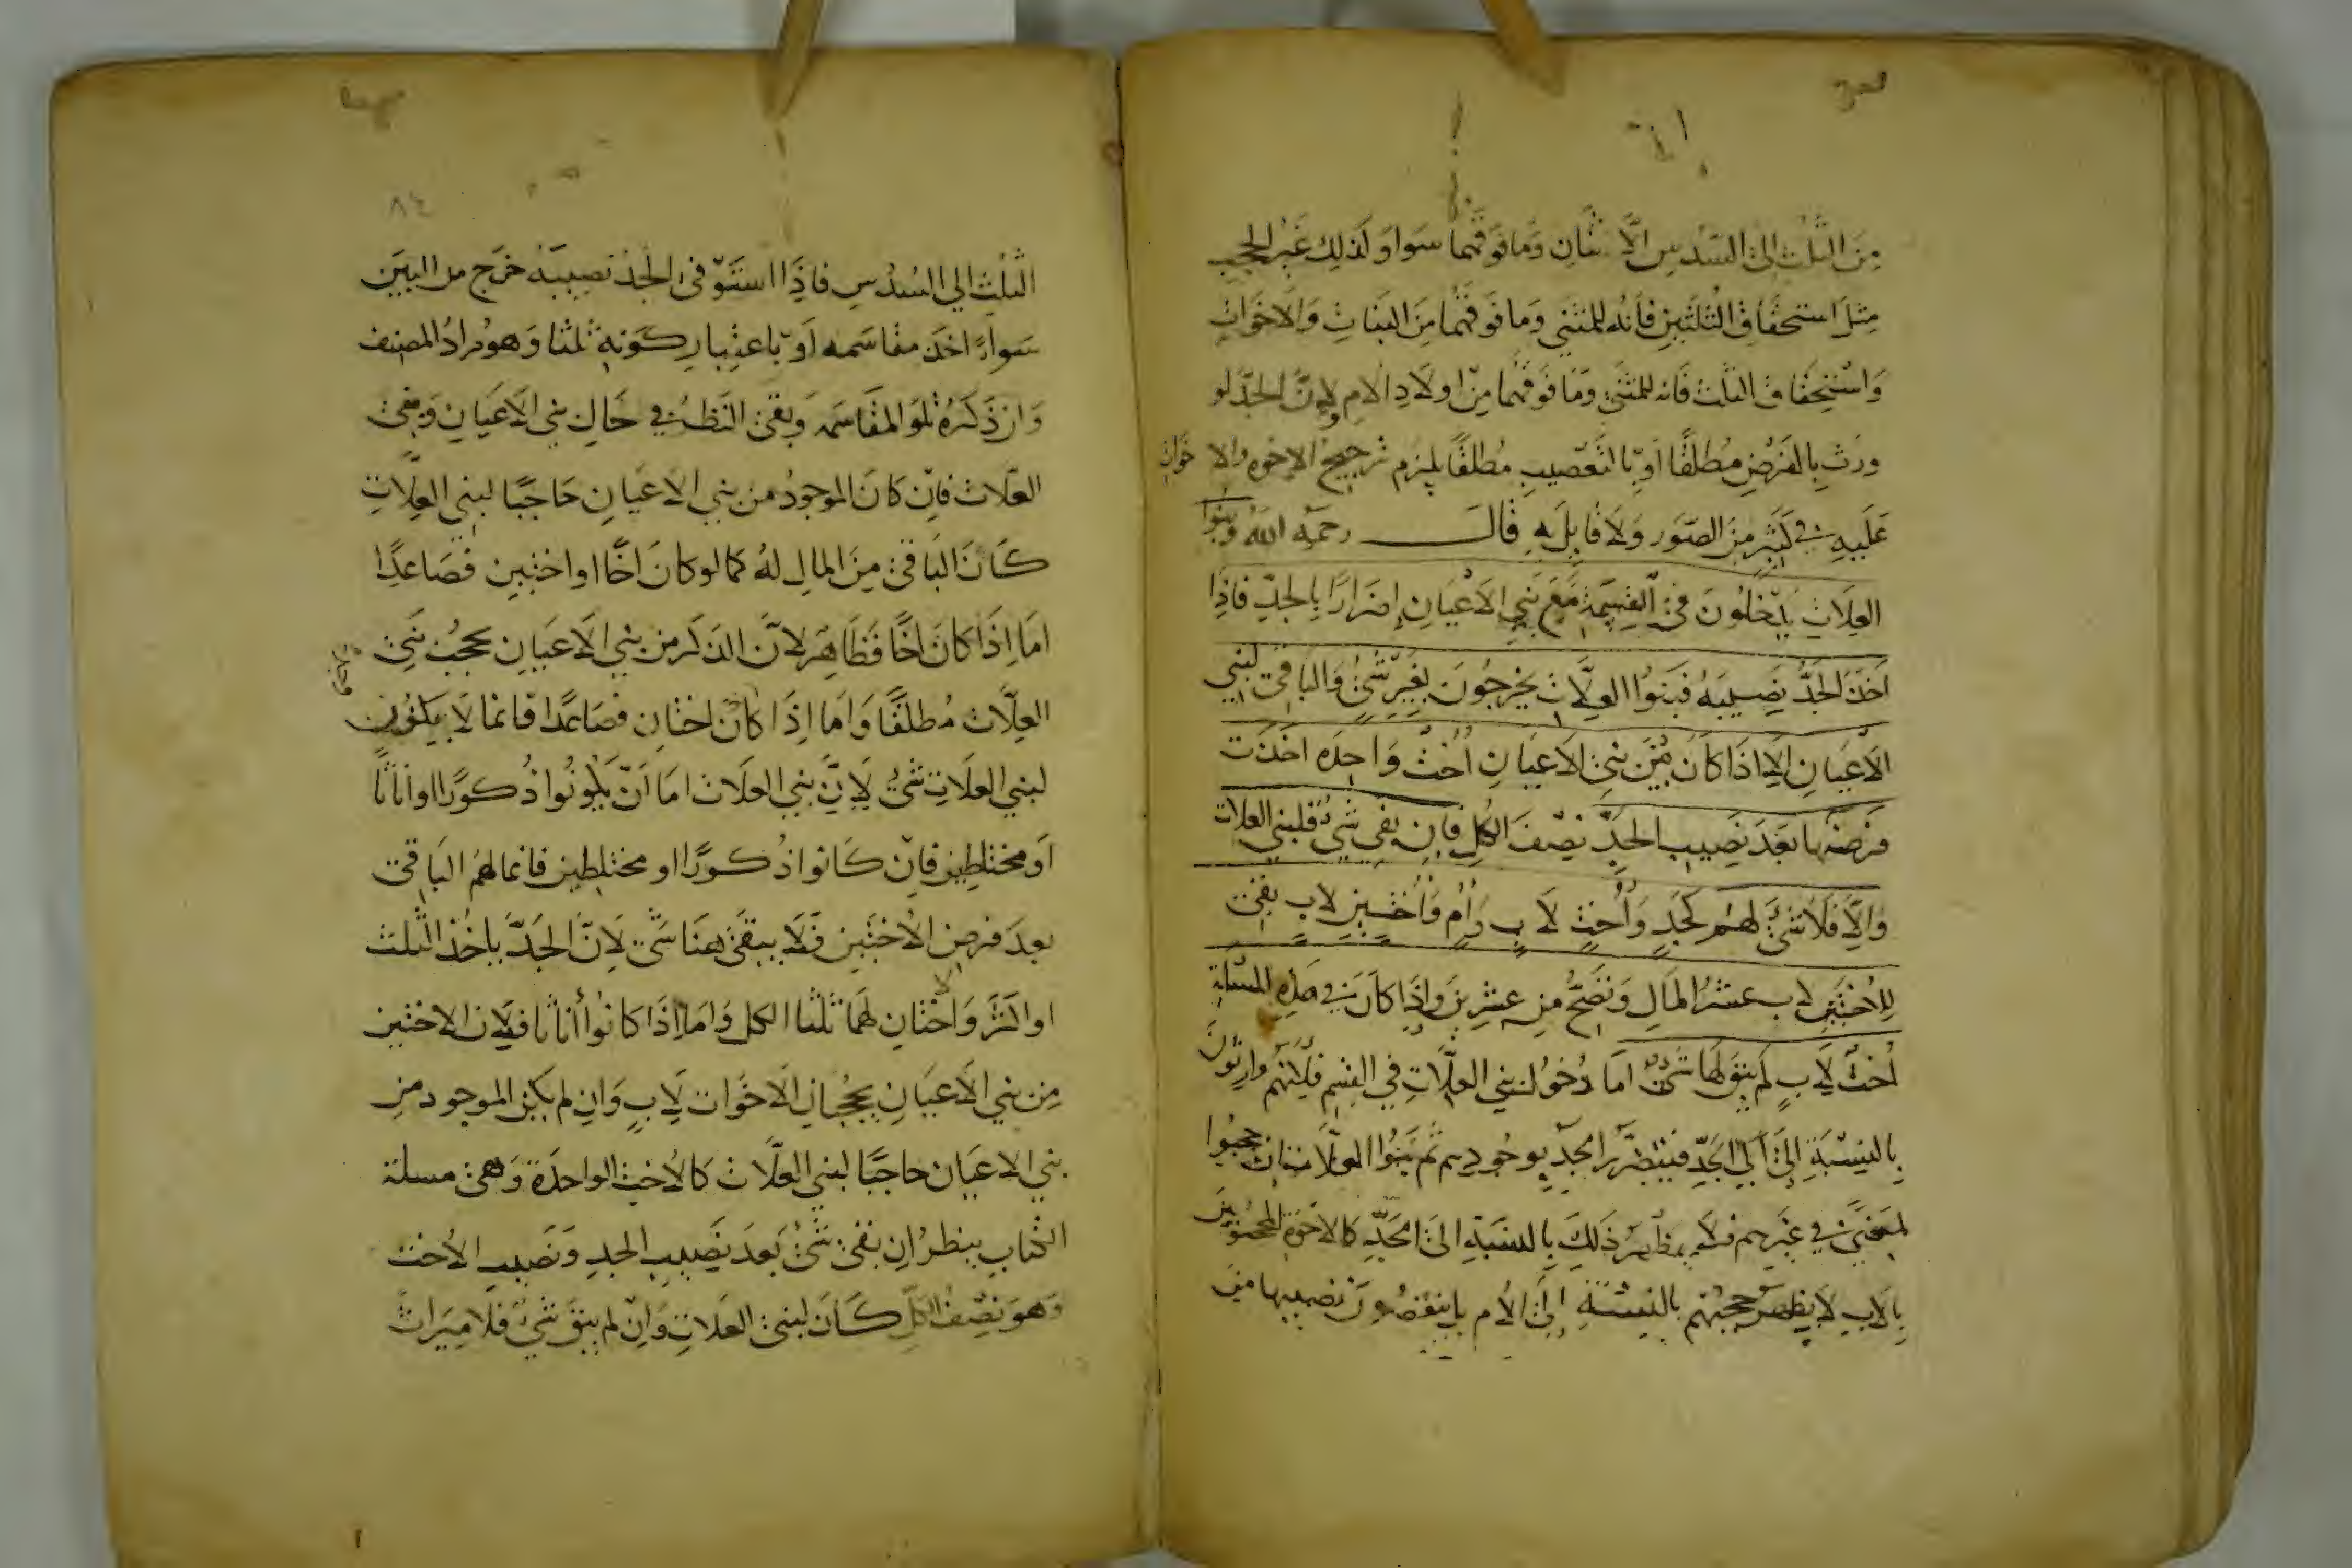 من الثلث الى السدس الاثنان وما فوقهما سوا وكذلك غير الحجب
مثل استحقاق الثلثين فانه للمثنى وما فوقهما من البنات والاخوات
واستحقاق الثلث فانه للمثنى وما فوقهما من اولاد الام ولان الجد لو
ورث بالفرض مطلقا او بالتعصيب مطلقا يلزم ترجيح الاخوه والاخوات
عليه في كثير من الصور ولا قايل به قال رحمه الله وبنوا
العلات يدخلون في القسمة مع بني الاعيان اضرارا بالجد فاذا
اخذ الجد نصيبه فبنوا العلات يخرجون بغير شئ والباقي لبني
الاعيان الا اذا كان من بني الاعيان اخت واحده اخذت
فرضها بعد نصيب الجد نصف الكل فان بقي شئ فلبني العلات
والا فلا شئ لهم كجد واخت لاب وام واختين لاب بقي
للاختين لاب عشر المال وتصح من عشرين واذا كان في هذه المسئلة
اخت لاب لم يبق لها شئ اما دخول بني العلات في القسم فلانهم وارثون
بالنسبة الى الجد فيتضرر الجد بوجودهم ثم بنوا العلات حجبوا
لمعنى في غيرهم فلا يظهر ذلك بالنسبة الى الجد كالاخوة المحجوبين
بالاب لا يظهر حجبهم بالنسبة الى الام بل ينقصون نصيبها من
٨٤
الثلث الى السدس فاذا استوفى الجد نصيبه خرج من البين
سواء اخذ مقاسمه او باعتبار كونه ثلثا وهو مراد المصنف
وان ذكره تلو المقاسمه وبقي النظر في حال بني الاعيان وبني
العلات فان كان الموجود من بني الاعيان حاجبا لبني العلات
كان الباقي من المال له كما لو كان اخا او اختين فصاعدا
اما اذا كان اخا فظاهر لان الذكر من بني الاعيان يحجب بني
العلات مطلقا واما اذا كان اختان فصاعدا فانما لا يكون
لبني العلات شئ لان بني العلات اما ان يكونوا ذكورا او اناثا
او مختلطين فان كانوا ذكورا او مختلطين فانما لهم الباقي
بعد فرض الاختين فلا يبقى هنا شئ لان الجد ياخذ الثلث
او اكثر والاختان لهما ثلثا الكل واما اذا كانوا اناثا فلان الاختين
من بني الاعيان يحجبان الاخوات لاب وان لم يكن الموجود من
بني الاعيان حاجبا لبني العلات كالاخت الواحدة وهي مسلة
الكتاب ينظر ان بقي شئ بعد نصيب الجد ونصيب الاخت
وهو نصف الكل كان لبني العلات وان لم يبق شئ فلا ميراث